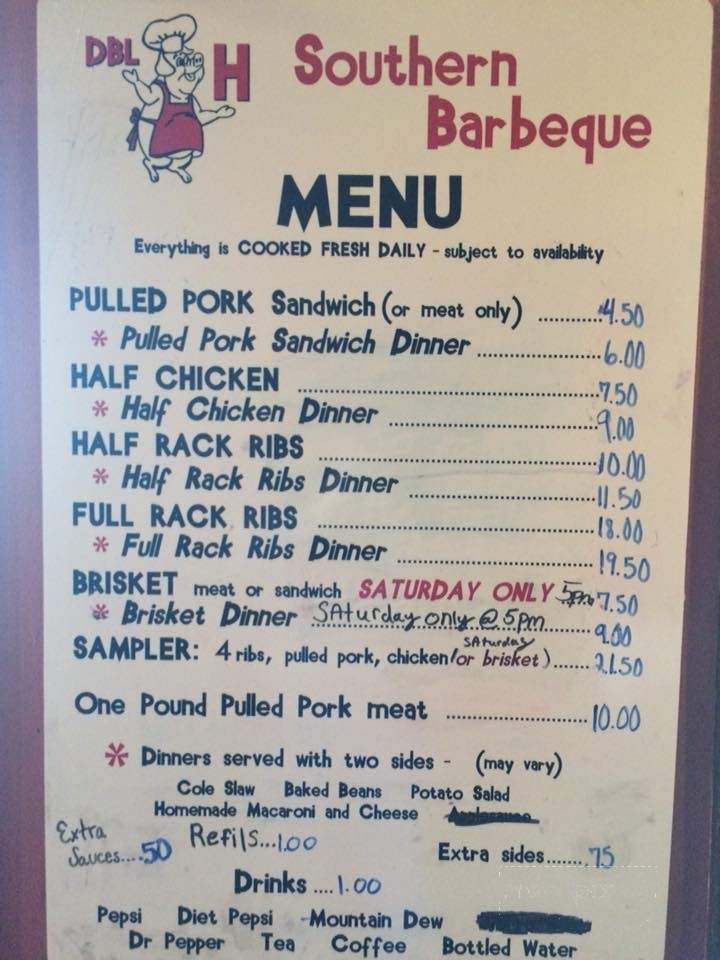 DBL H Southern
Barbeque
MENU
Everything is COOKED FRESH DAILY - subject to availability
PULLED PORK Sandwich (or meat only) ..........4.50
* Pulled Pork Sandwich Dinner ..........6.00
HALF CHICKEN ..........7.50
* Half Chicken Dinner ..........9.00
HALF RACK RIBS ..........10.00
* Half Rack Ribs Dinner ..........11.50
FULL RACK RIBS ..........18.00
* Full Rack Ribs Dinner ..........19.50
BRISKET meat or sandwich SATURDAY ONLY 5pm 7.50
* Brisket Dinner SAturday only @ 5pm ..........9.00
SAturday
SAMPLER: 4 ribs, pulled pork, chicken (or brisket) ......21.50
One Pound Pulled Pork meat ..........10.00
* Dinners served with two sides - (may vary)
Cole Slaw Baked Beans Potato Salad
Homemade Macaroni and Cheese Applesauce
Extra
Sauces....50
Refils...1.00
Extra sides.......75
Drinks ....1.00
Pepsi Diet Pepsi Mountain Dew
Dr Pepper Tea Coffee Bottled Water